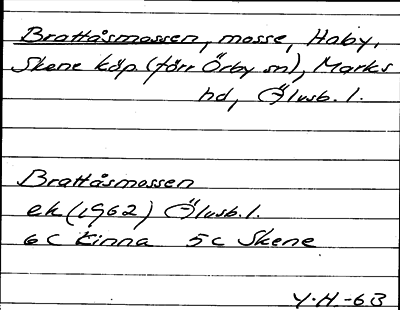 Brattåsmossen, mosse, Haby,
Skene köp. (förr Örby sn), Marks
hd, Älvsb. l.
Brattåsmossen
ek (1962) Älvsb. l.
6C Kinna 5c Skene
Y.H.-63